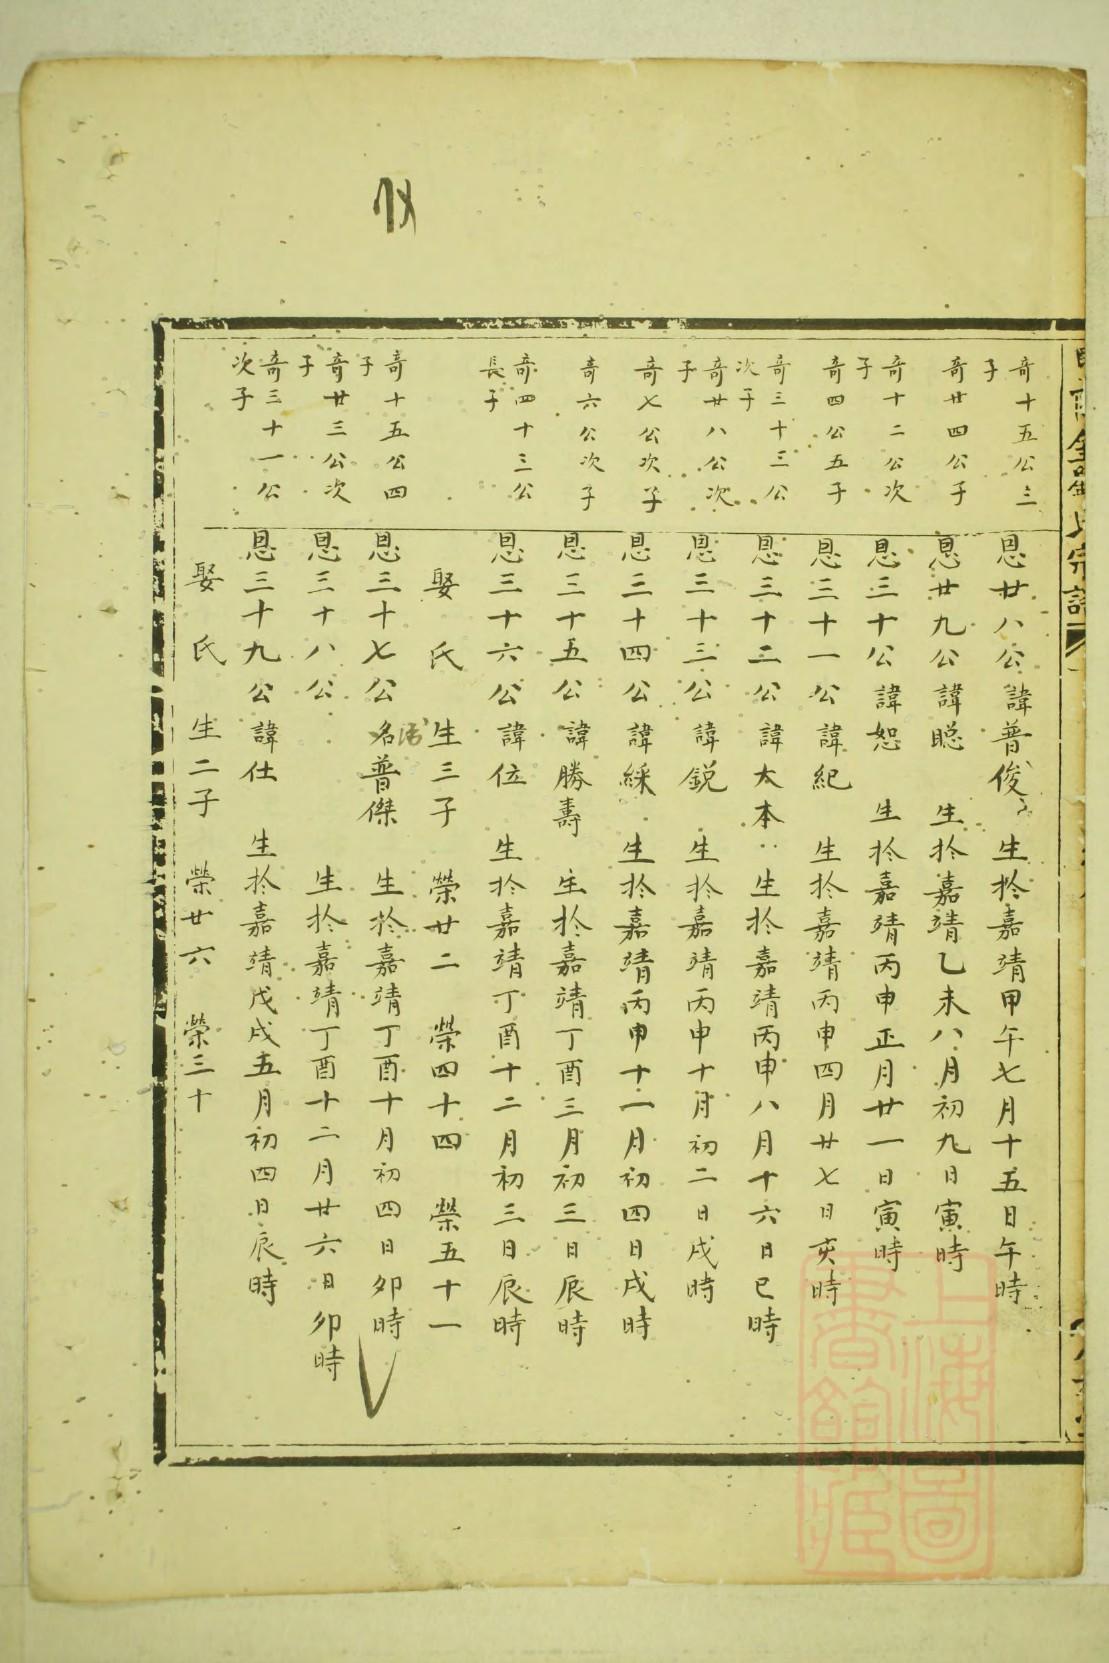 奇十五公三子
恩廿八公諱普俊 生扵嘉靖甲午七月十五日午時
奇廿四公子
恩廿九公諱聪 生扵嘉靖乙未八月初九日寅時
奇十二公次子
恩三十公諱恕 生扵嘉靖丙申正月廿一日寅時
奇四公五子
恩三十一公諱紀 生扵嘉靖丙申四月廿七日亥時
奇三十三公次子
恩三十二公諱太本 生扵嘉靖丙申八月十六日巳時
奇廿八公次子
恩三十三公諱鋭 生扵嘉靖丙申十月初二日戌時
奇七公次子
恩三十四公諱綵 生扵嘉靖丙申十一月初四日戌時
奇六公次子
恩三十五公諱勝壽 生扵嘉靖丁酉三月初三日辰時
奇四十三公長子
恩三十六公諱位 生扵嘉靖丁酉十二月初三日辰時
娶 氏 生三子 榮廿二 榮四十四 榮五十一
奇十五公四子
恩三十七公名普傑 生扵嘉靖丁酉十月初四日卯時
奇廿三公次子
恩三十八公 生扵嘉靖丁酉十二月廿六日卯時
奇三十一公次子
恩三十九公諱仕 生扵嘉靖戊戌五月初四日辰時
娶 氏 生二子 榮廿六 榮三十
上海圖書館藏